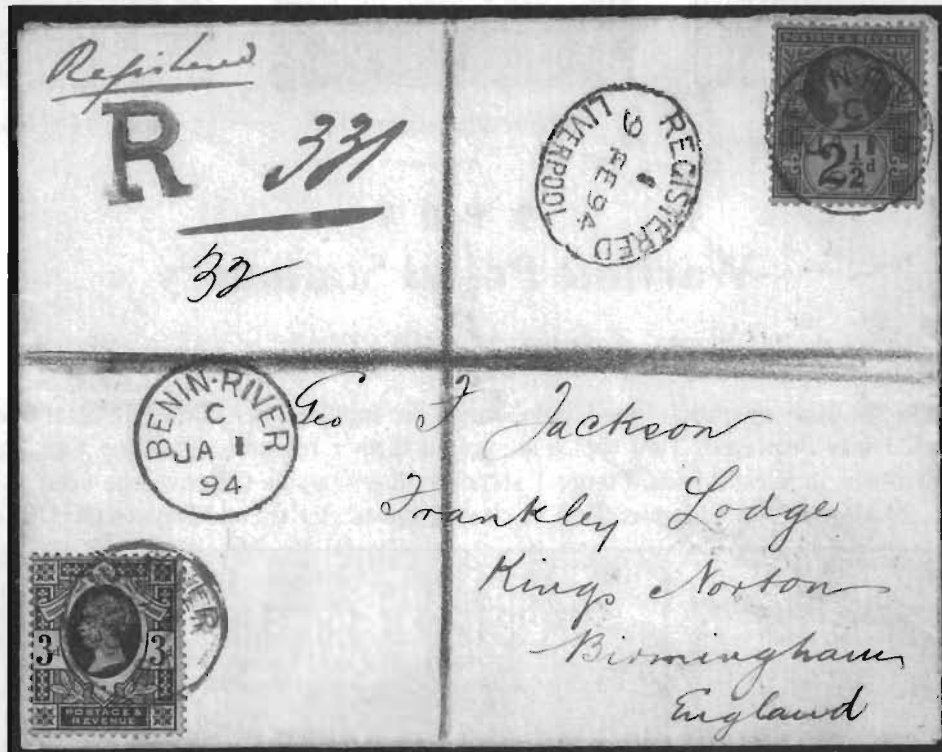 Registered
R 331
32
REGISTERED
9 FE 94
LIVERPOOL
POSTAGE & REVENUE
N-RIV
C
2½d
BENIN·RIVER
C
JA 1
94
Geo F Jackson
Frankley Lodge
Kings Norton
Birmingham
England
VER
3d 3d
POSTAGE &
REVENUE